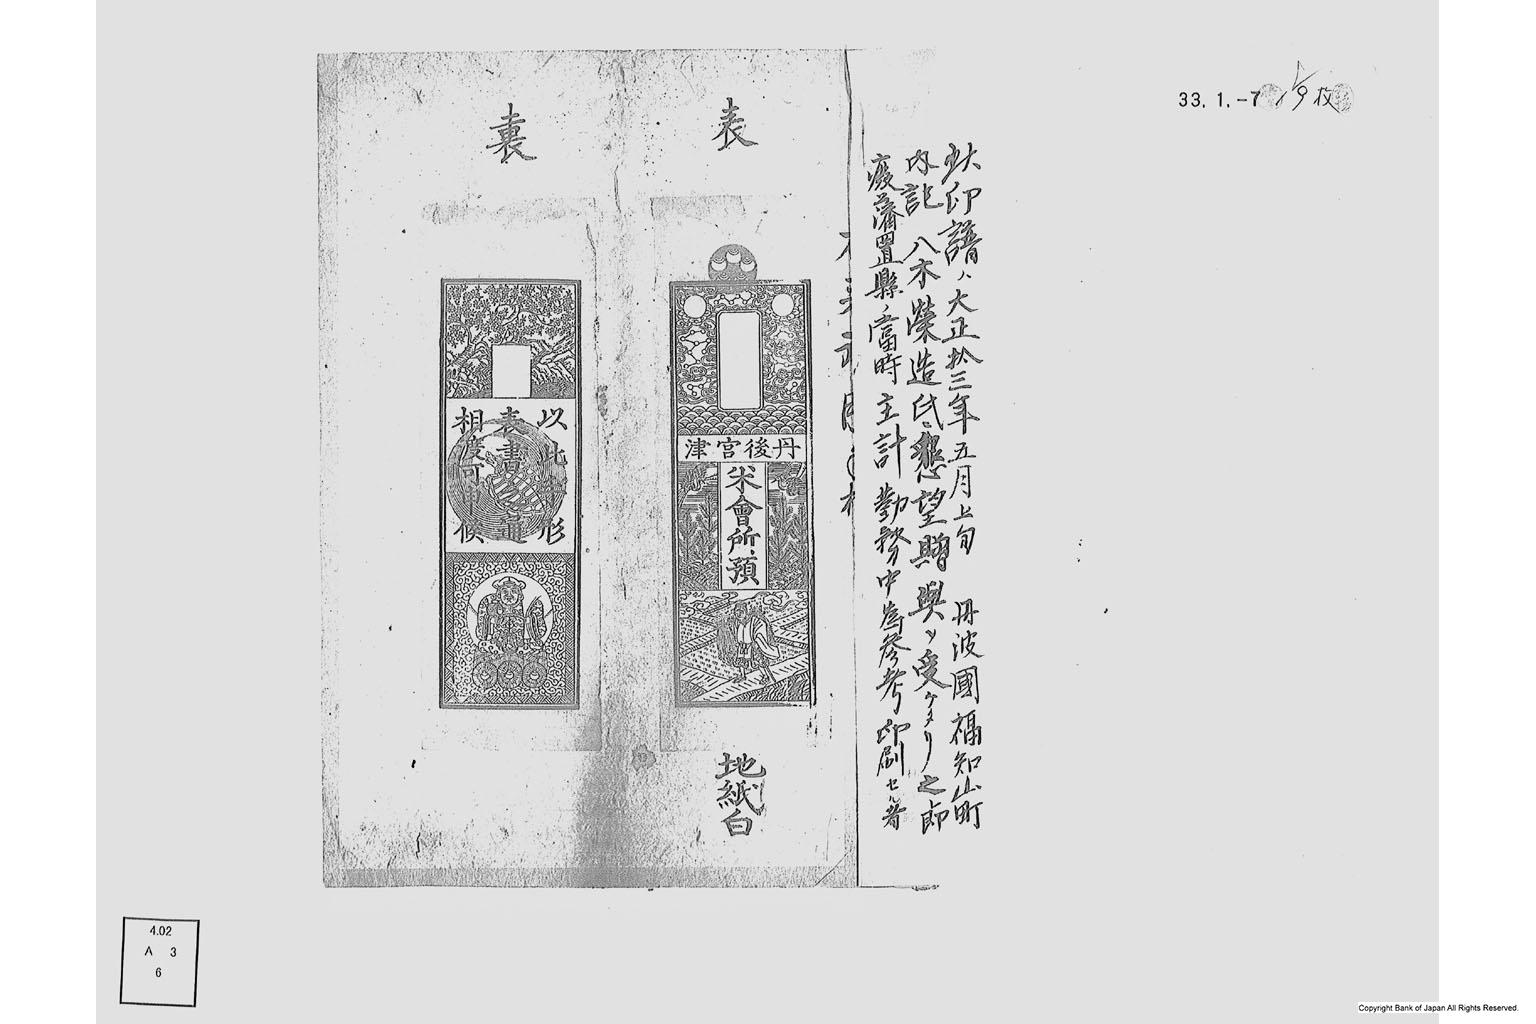 33. 1. -7
枚
此印譜ハ大正拾三年五月上旬 丹波國福知山町
内記 八木榮造氏ニ懇望贈與ヲ受ケタリ之節
廢藩置縣ノ當時主計勤務中為参考印刷セル者
表
丹後宮津
米會所預
地紙白
裏
以此
表書之通
相渡可申候
4.02
A 3
6
Copyright Bank of Japan All Rights Reserved.